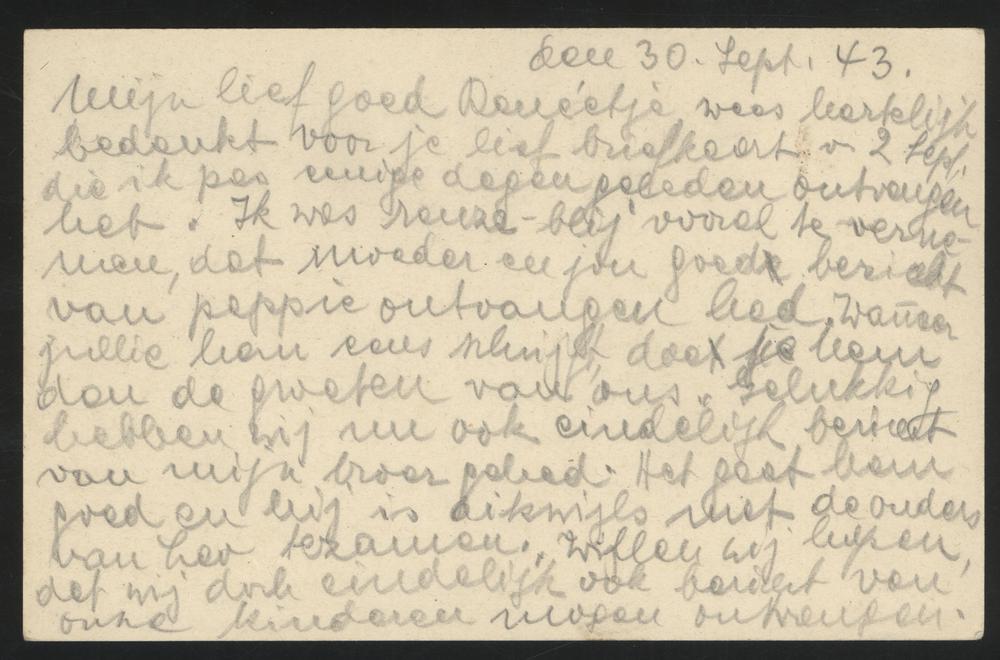 den 30. Sept. 43.
Mijn lief goed Reneétje wees hartelijk
bedankt voor je lief briefkaart v 2 Sept.
die ik pas enige dagen geleden ontvangen
heb. Ik was reuze-blij vooral te verne-
men, dat moeder en jou goede bericht
van pappie ontvangen had. Wanneer
jullie hem eens schrijft, doet je hem
dan de groeten van ons. Gelukkig
hebben wij nu ook eindelijk bericht
van mijn broer gehad. Het gaat hem
goed en hij is dikwijls met de ouders
van tezamen. Willen wij hopen,
dat wij doch eindelijk ook bericht van
onze kinderen mogen ontvangen.